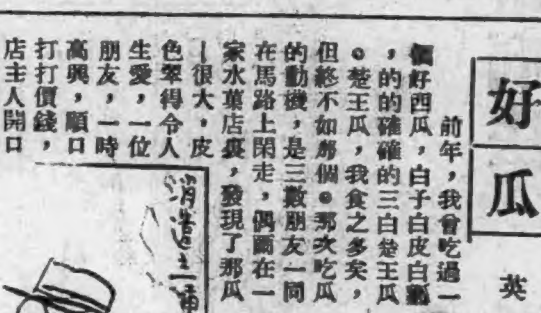 好瓜
英
前年，我曾吃過一
個好西瓜，白子白皮白瓤
，的的確確的三白楚王瓜
。楚王瓜，我食之多矣，
但終不如那個。那次吃瓜
的動機，是三數朋友一同
在馬路上閑走，偶爾在一
家水菓店裏，發現了那瓜
—很大，皮
色翠得令人
生愛，一位
朋友，一時
高興，順口
打打價錢，
店主人開口
消遣之